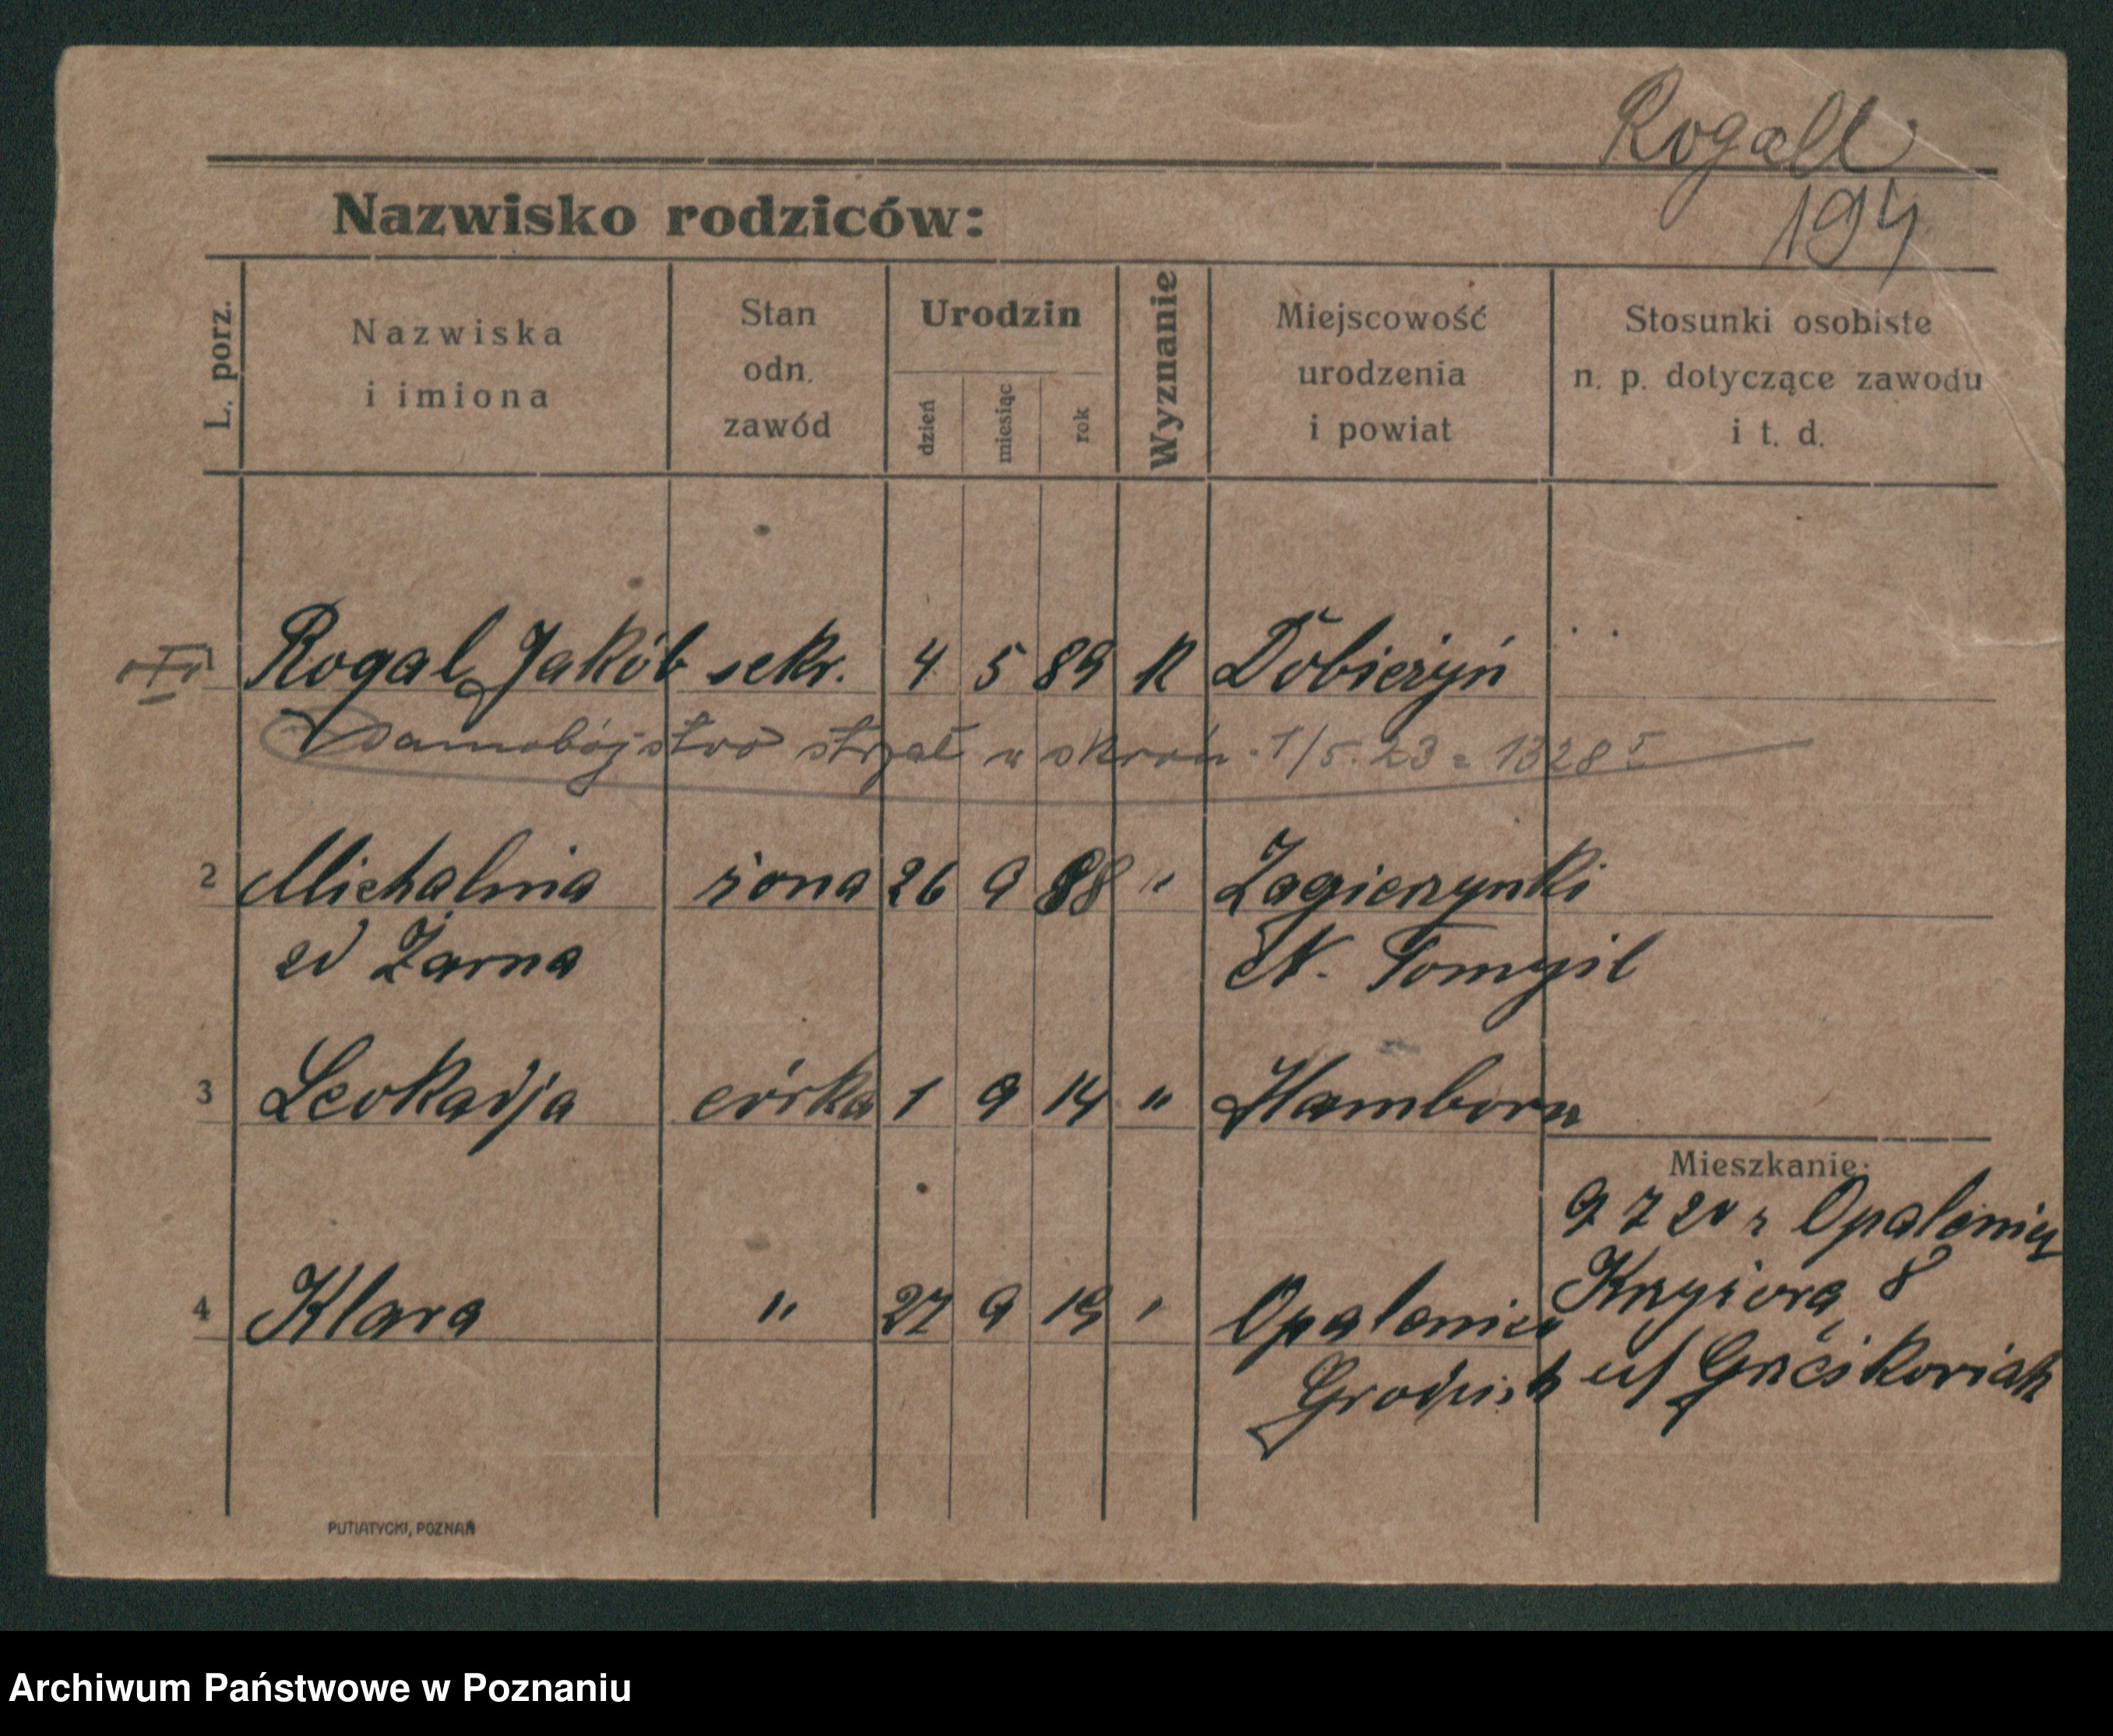 Rogall
194
Nazwisko rodziców:
L. porz.
Nazwiska
i imiona
Stan
odn.
zawód
Urodzin
dzień
miesiąc
rok
Wyznanie
Miejscowość
urodzenia
i powiat
Stosunki osobiste
n. p. dotyczące zawodu
i t. d.
Rogal Jakób sekr. 4 5 89 K Dobieżyń
Samobójstwo strzał w skroń 1/5.23
2 Michalina żona 26 9 88 "
zd Żarna N. Tomyśl
3 Leokadja córka 1 9 14 " Hamborn
Mieszkanie:
9 7 20 z Opalenicy
4 Klara " 27 9 19 " Opalenica
Krzyżowa 8
Grodzisk
PUTIATYCKI, POZNAŃ
Archiwum Państwowe w Poznaniu